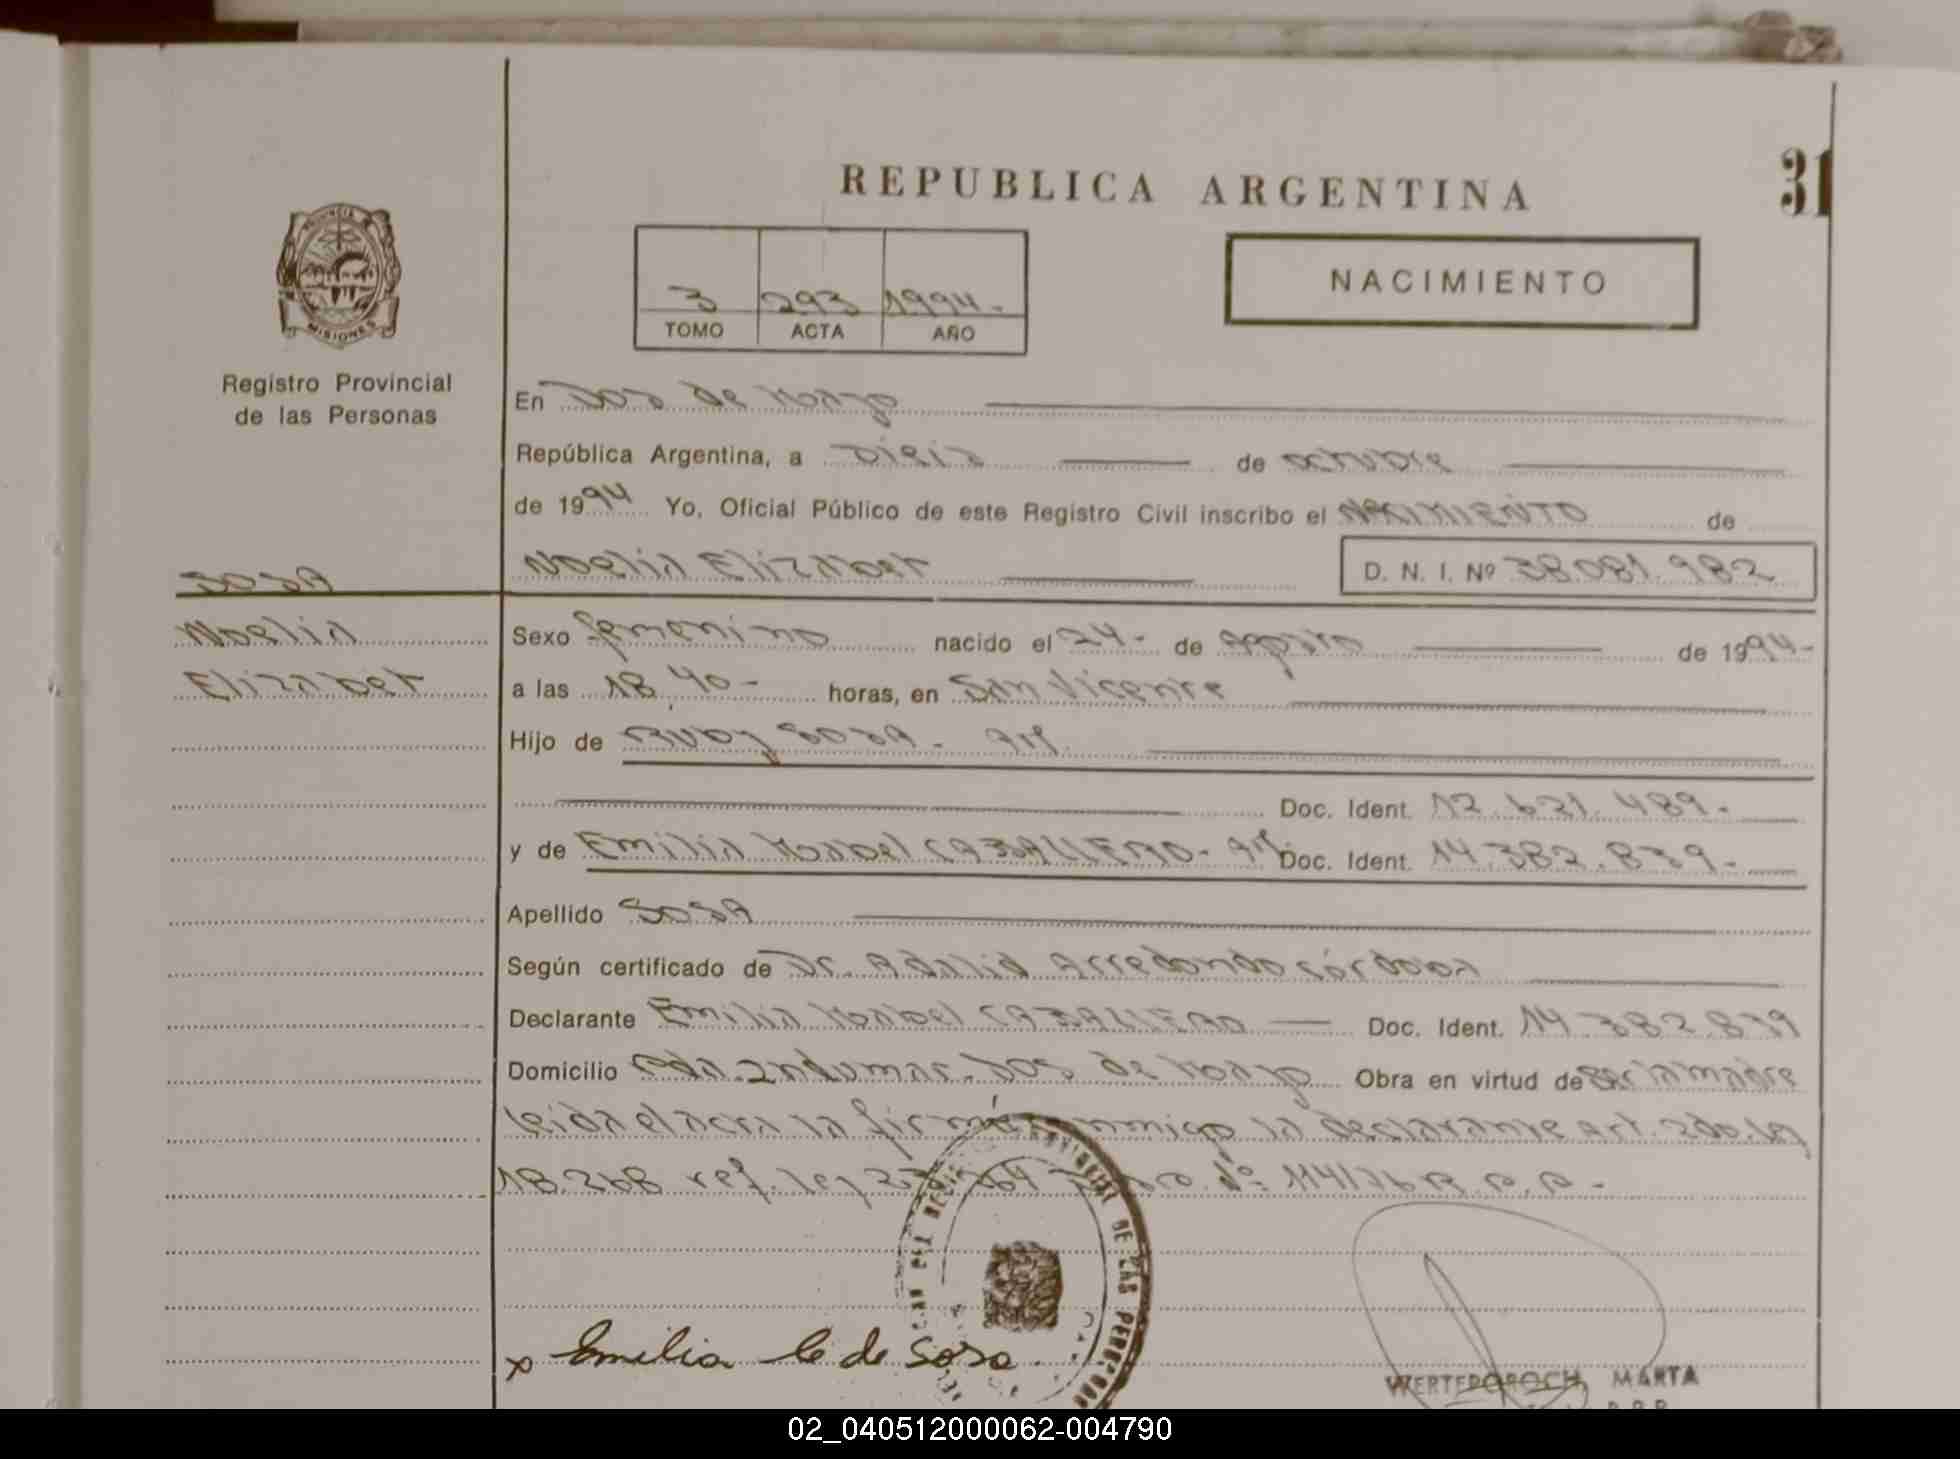 REPUBLICA ARGENTINA
31
PROVINCIA DE
MISIONES
Registro Provincial
de las Personas
3 293 1994.-
TOMO ACTA AÑO
NACIMIENTO
En Dos de Mayo
República Argentina, a Dieis de octubre
de 1994 Yo, Oficial Público de este Registro Civil inscribo el NACIMIENTO de
Noelia Elizabet D. N. I. Nº 38.081.982
SOSA
Noelia
Elizabet
Sexo femenino nacido el 24- de Agosto de 1994-
a las 18,40- horas, en San Vicente
Hijo de Ruby SOSA. Arg.
Doc. Ident. 12.621.489.-
y de Emilia Ysabel CABALLERO- Arg. Doc. Ident. 14.382.839.-
Apellido SOSA
Según certificado de Dr. Adalid Arredondo Córdova
Declarante Emilia Ysabel CABALLERO Doc. Ident. 14.382.839
Domicilio Pda. Indumar. Dos de Mayo Obra en virtud de Ser la madre
leida el acta la firma conmigo la declarante Art. 2do. Ley
18.248 ref. ley Nº 114/76 R.P.P.-
PROVINCIAL DE LAS PERSONAS
x Emilia C de Sosa.
WERTEPOROCH, MARTA
02_040512000062-004790